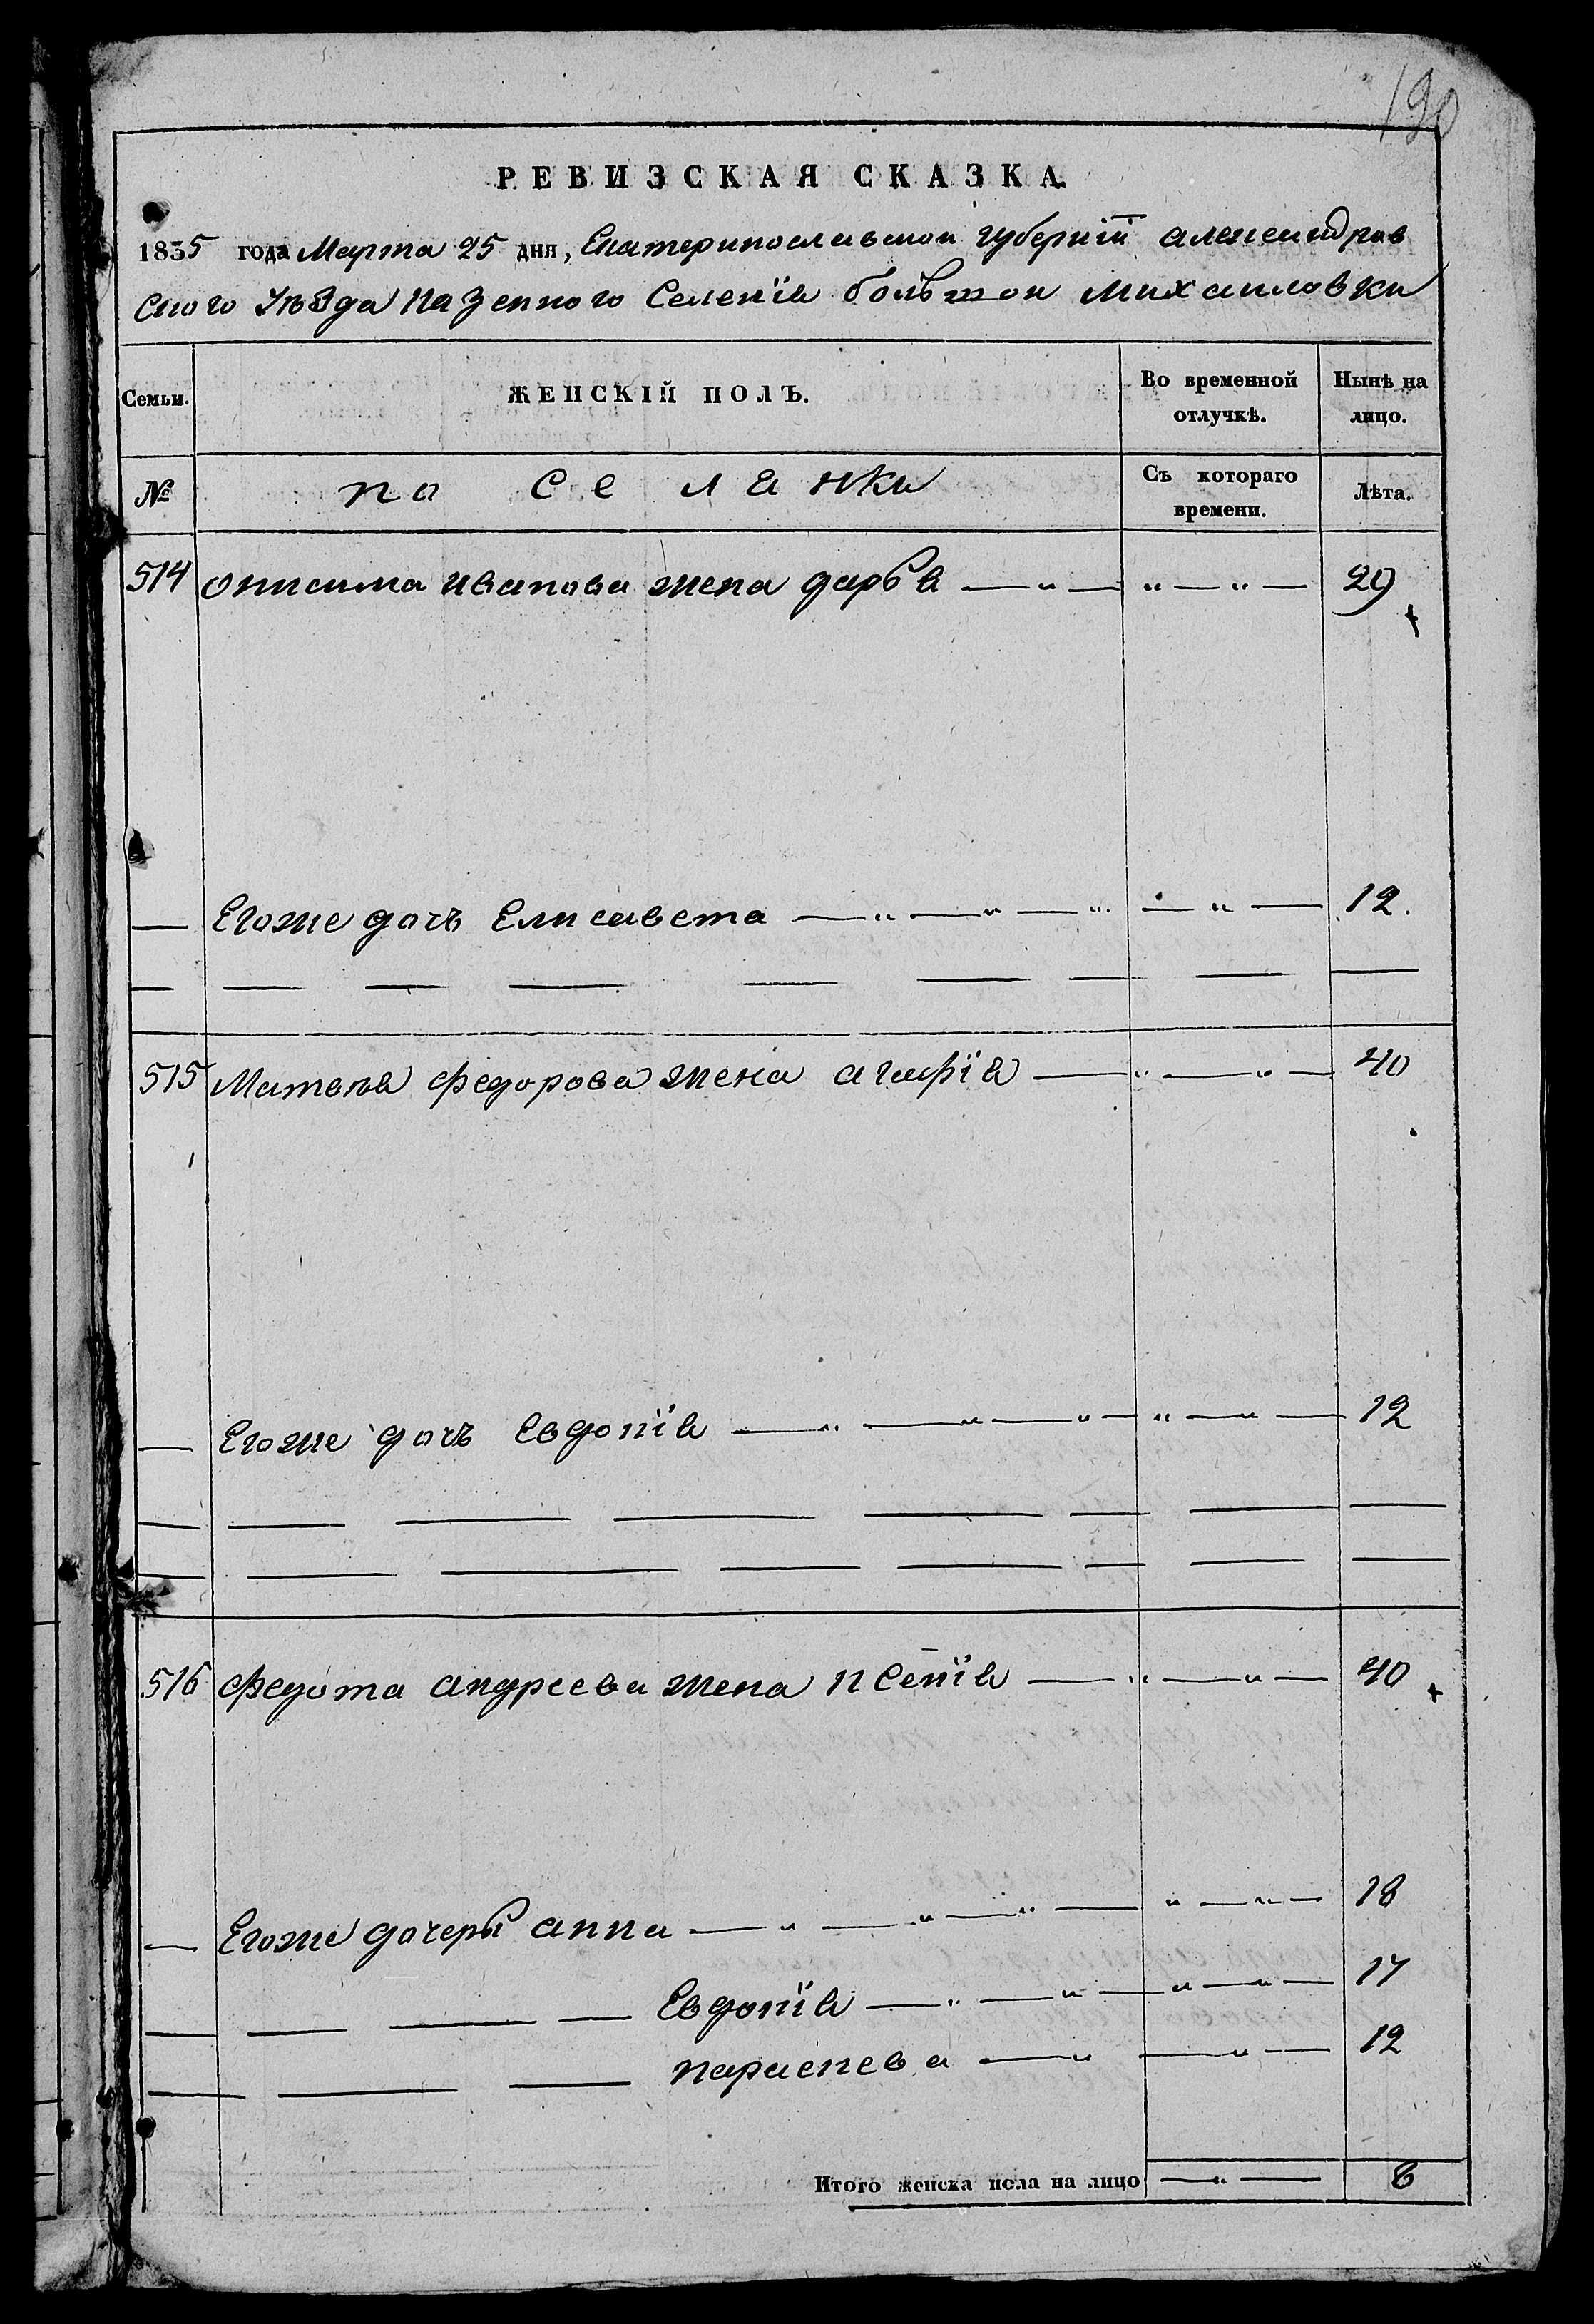 190
РЕВИЗСКАЯ СКАЗКА.
1835 года Марта 25 дня, Екатеринославской губерніи александров
ского Уѣзда казенного Селенія большой михаиловки
Семьи. ЖЕНСКІЙ ПОЛЪ. Во временной отлучкѣ. Нынѣ на лицо.
№ по се ля нки Съ котораго времени. Лѣта.
514 онисима иванова жена дарья — „ — „ — „ — 29
— Егоже дочь Елисавета — „ — „ — „ — „ — 12.
515 Матвѣя федорова жена агафія — „ — „ — 40
— Егоже дочь Евдокія — „ — „ — „ — „ — „ — 12
516 федота андреева жена ксенія — „ — „ — 40
— Егоже дочеры анна — „ — „ — „ — „ — „ — 18
— — — — Евдокія — „ — „ — „ — „ — 17
— — — параскева — „ — „ — 12
Итого женска пола на лицо — „ — 8